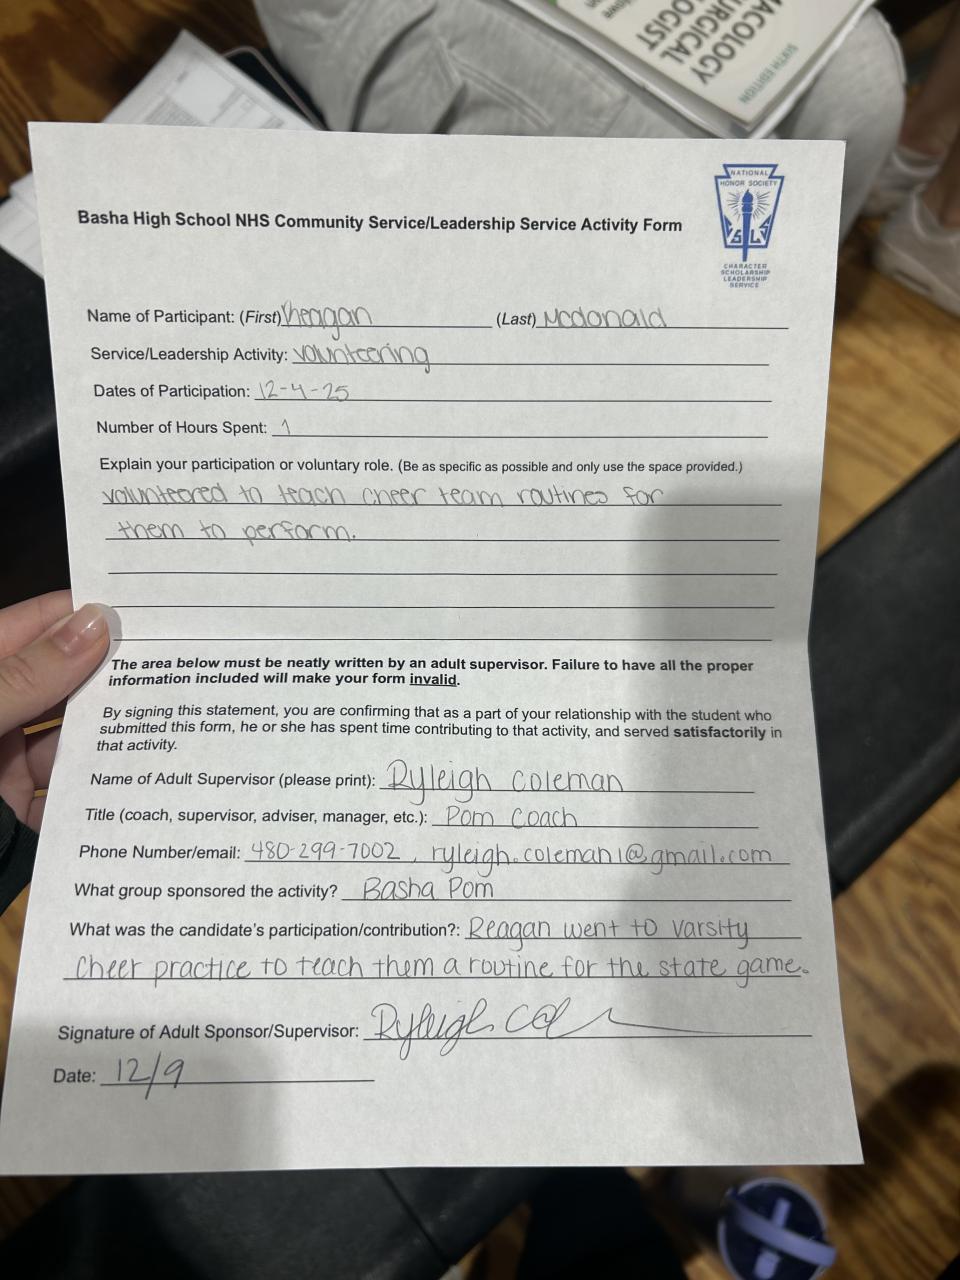 MACOLOGY
URGICAL
OLOGIST
SIXTH EDITION
NATIONAL
HONOR SOCIETY
CHARACTER
SCHOLARSHIP
LEADERSHIP
SERVICE
Basha High School NHS Community Service/Leadership Service Activity Form
Name of Participant: (First) Reagan (Last) Mcdonald
Service/Leadership Activity: volunteering
Dates of Participation: 12-4-25
Number of Hours Spent: 1
Explain your participation or voluntary role. (Be as specific as possible and only use the space provided.)
volunteered to teach cheer team routines for
them to perform.
The area below must be neatly written by an adult supervisor. Failure to have all the proper
information included will make your form invalid.
By signing this statement, you are confirming that as a part of your relationship with the student who
submitted this form, he or she has spent time contributing to that activity, and served satisfactorily in
that activity.
Name of Adult Supervisor (please print): Ryleigh Coleman
Title (coach, supervisor, adviser, manager, etc.): Pom Coach
Phone Number/email: 480-299-7002, ryleigh.coleman1@gmail.com
What group sponsored the activity? Basha Pom
What was the candidate's participation/contribution?: Reagan went to varsity
cheer practice to teach them a routine for the state game.
Signature of Adult Sponsor/Supervisor: Ryleigh Col
Date: 12/9